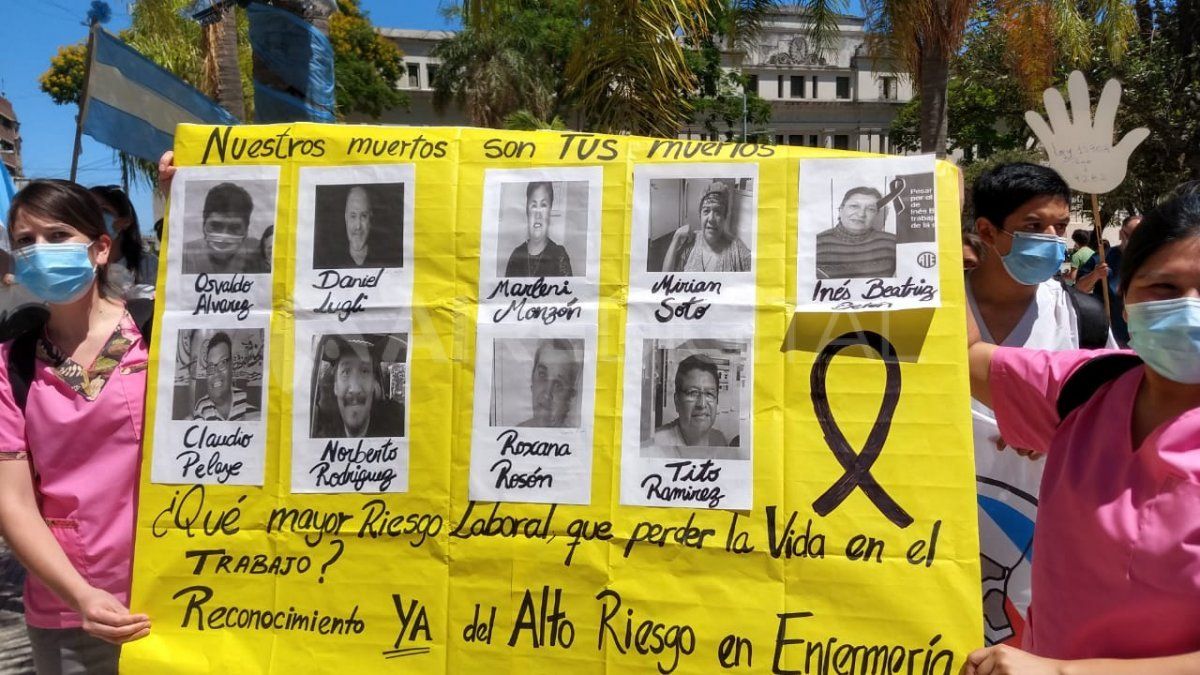 Nuestros muertos son TUS muertos
Osvaldo
Alvarez
Daniel
Lugli
Marleni
Monzón
Mirian
Soto
Pesar
por el
de
Inés B
trabaja
de la
ATE
Inés Beatriz
Claudio
Pelaye
Norberto
Rodriguez
Roxana
Rosón
Tito
Ramirez
¿Qué mayor Riesgo Laboral, que perder la Vida en el
TRABAJO?
Reconocimiento YA del Alto Riesgo en Enfermería
Ley
4282